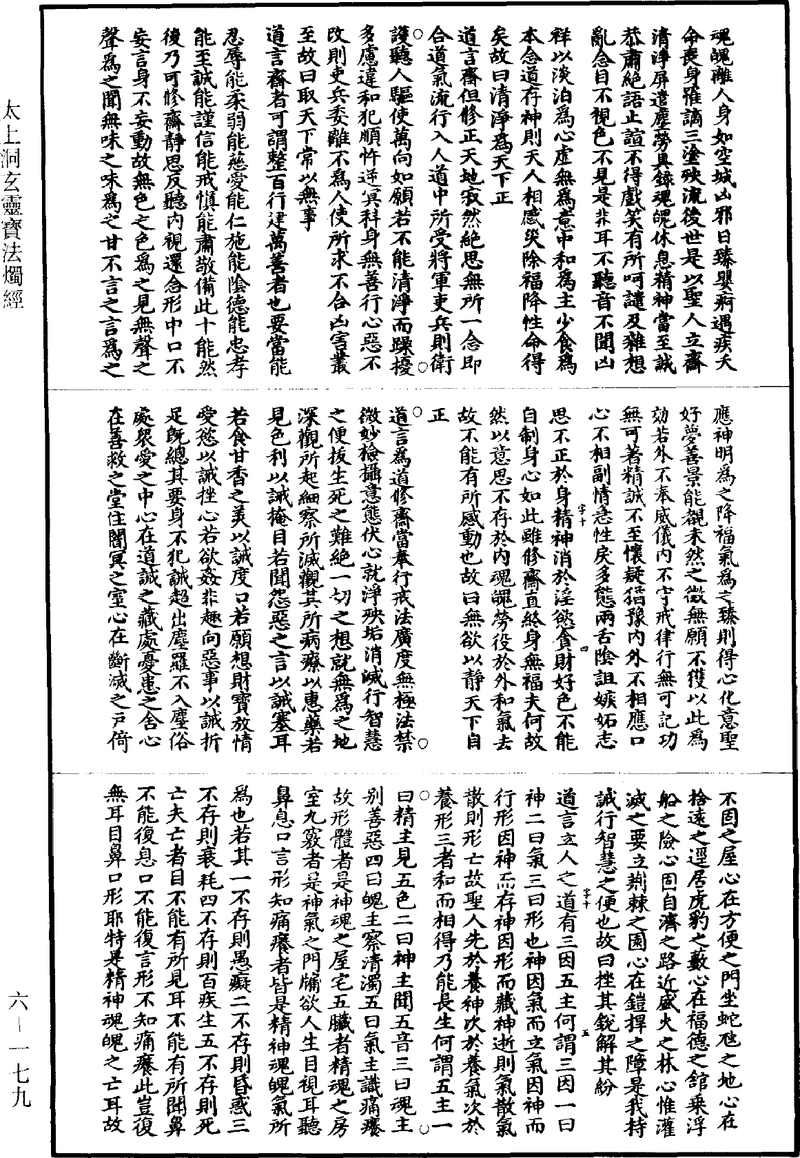 太上洞玄靈寶法燭經
魂魄離人身如空城凶邪日臻嬰痾遇疾夭
命喪身罹謫三塗殃流後世是以聖人立齋
清淨屏遣塵勞與錄魂魄休息精神當至誠
恭肅絕語止諠不得戲笑有所呵譴及雜想
亂念目不視色不見是非耳不聽音不聞凶
祥以淡泊為心虛無為意中和為主少食為
本念道存神則天人相感災除福降性命得
矣故曰清淨為天下正
道言齋但修正天地寂然絕思無所一念即
合道氣流行入人道中所受將軍吏兵則衛
護聽人驅使萬向如願若不能清淨而躁擾
多慮違和犯順忤逆冥科身無善行心惡不
改則吏兵委離不為人使所求不合凶害叢
至故曰取天下常以無事
道言齋者可謂整百行建萬善者也要當能
忍辱能柔弱能慈愛能仁施能陰德能忠孝
能至誠能謹信能戒慎能肅敬備此十能然
後乃可修齋靜思反聽內視還念形中口不
妄言身不妄動故無色之色為之見無聲之
聲為之聞無味之味為之甘不言之言為之
應神明為之降福氣為之臻則得心化意聖
好夢善景能覩未然之徵無願不獲以此為
効若外不奉威儀內不守戒律行無可記功
無可著精誠不至懷疑猶豫內外不相應口
心不相副情急性戾多態兩舌陰詛嫉妬志
思不正於身精神消於淫慾貪財好色不能
自制身心如此雖修齋直終身無福夫何故
然以意思不存於內魂魄勞役於外和氣去
故不能有所感動也故曰無欲以靜天下自
正
道言為道修齋當奉行戒法廣度無極法禁
微妙檢攝意態伏心就淨殃垢消滅行智慧
之便拔生死之難絕一切之想就無為之地
深觀所起細察所滅觀其所病療以惠藥若
見色利以誠掩目若聞怨惡之言以誠塞耳
若食甘香之美以誠度口若願想財寶放情
愛慾以誠挫心若欲姦非趣向惡事以誠折
足旣總其要身不犯誠超出塵羅不入塵俗
處衆愛之中心在道誠之藏處憂患之舍心
在善救之堂住闇冥之室心在斷滅之戶倚
不固之屋心在方便之門坐蛇虺之地心在
捨遠之逕居虎豹之藪心在福德之舘乘浮
船之險心固自濟之路近盛火之林心惟灌
滅之要立荆棘之園心在鎧捍之障是我持
誠行智慧之便也故曰挫其銳解其紛
道言立人之道有三因五主何謂三因一曰
神二曰氣三曰形也神因氣而立氣因神而
行形因神而存神因形而藏神逝則氣散氣
散則形亡故聖人先於養神次於養氣次於
養形三者和而相得乃能長生何謂五主一
曰精主見五色二曰神主聞五音三曰魂主
别善惡四曰魄主察清濁五曰氣主識痛癢
故形體者是神魂之屋宅五臟者精魂之房
室九竅者是神氣之門牖欲人生目視耳聽
鼻息口言形知痛癢者皆是精神魂魄氣所
為也若其一不存則愚癡二不存則昏惑三
不存則衰耗四不存則百疾生五不存則死
亡夫亡者目不能有所見耳不能有所聞鼻
不能復息口不能復言形不知痛癢此豈復
無耳目鼻口形耶特是精神魂魄之亡耳故
六–一七九